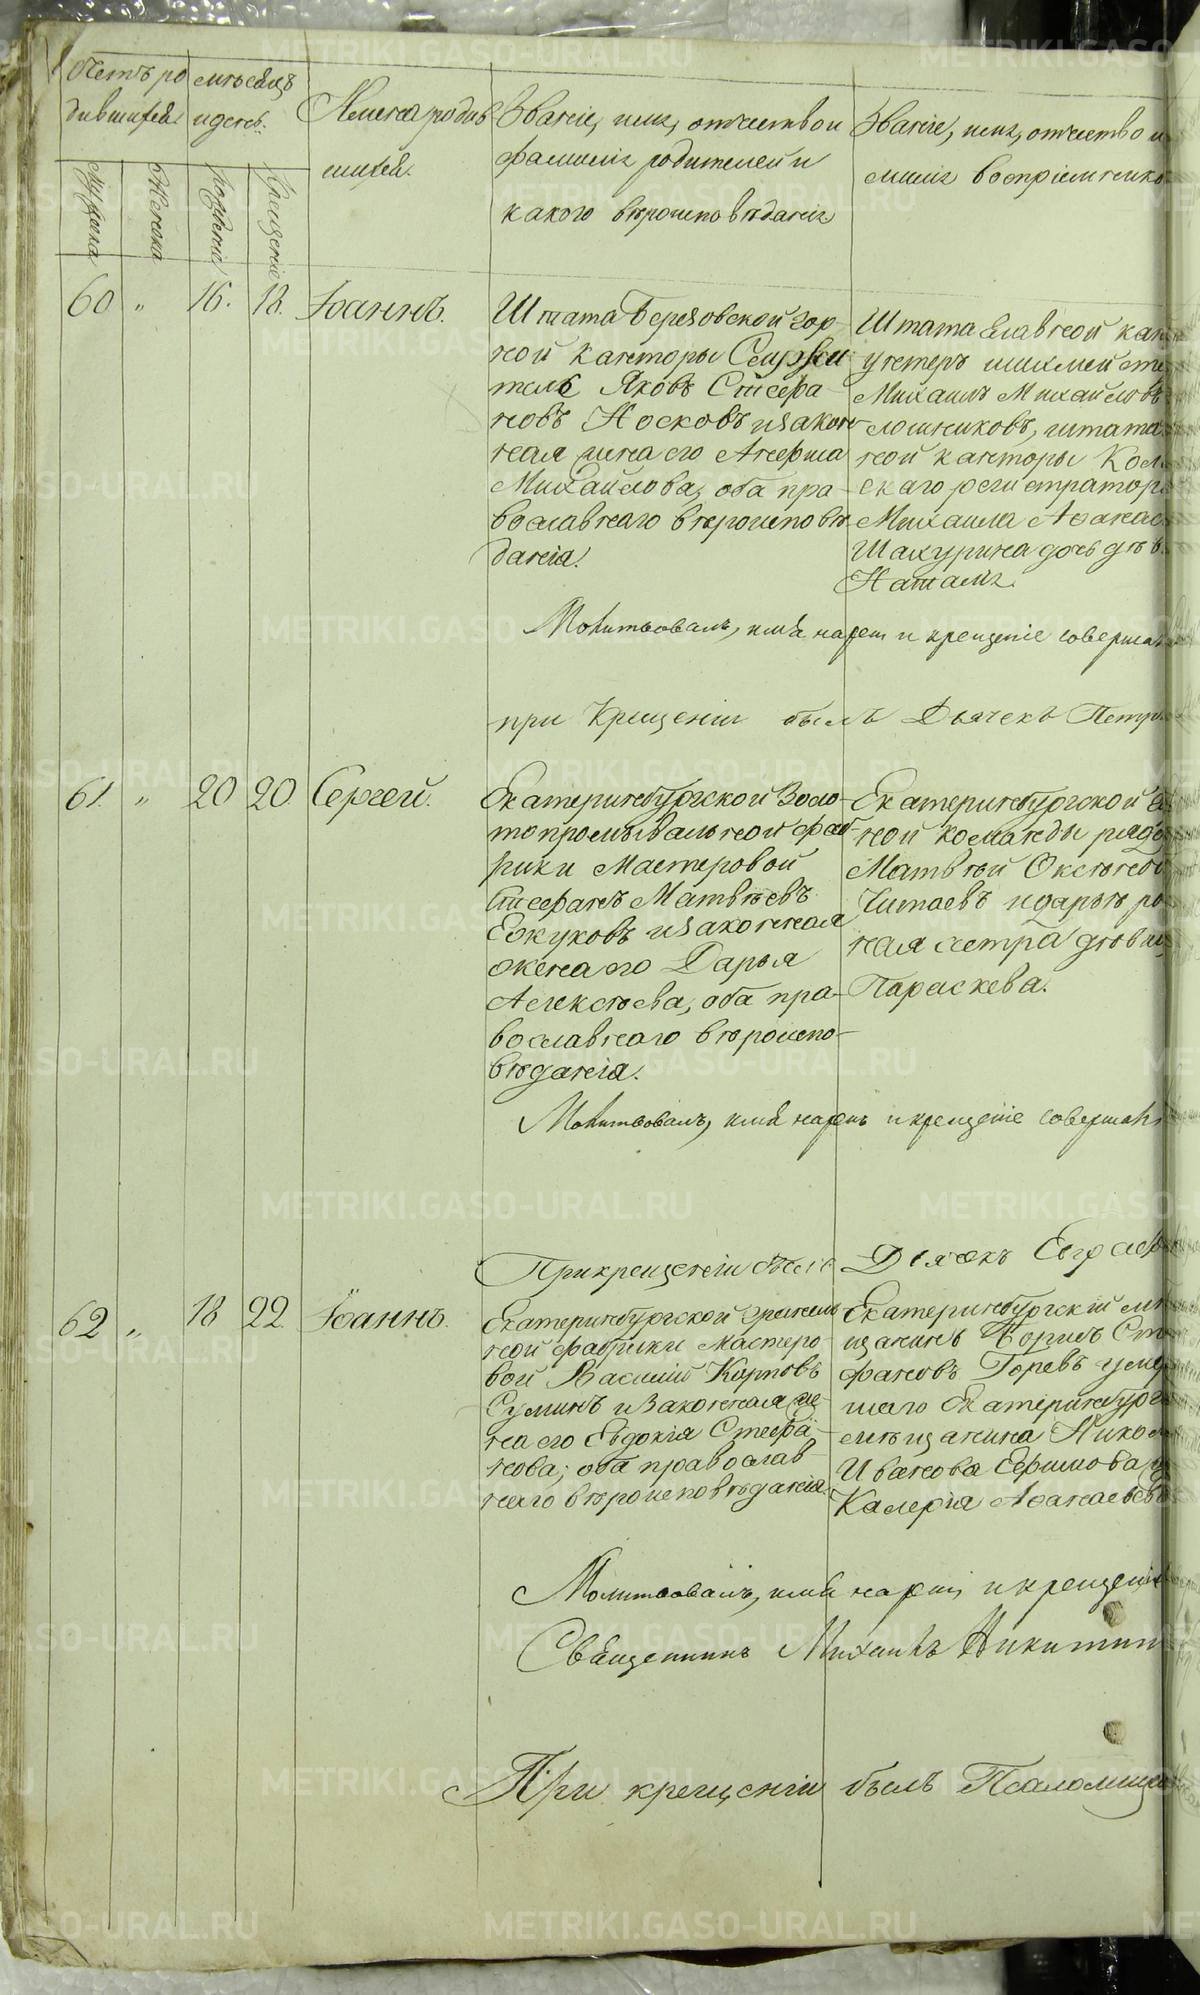 Счетъ ро мѣсяцъ
дившихся. и день.
Имена родив
шихся.
Званіе, имя, отчество и
фамилія родителей и
какого вѣроисповѣданія
Званіе, имя, отчество и
милія воспріемнико
мужеска
женска
рожденія
крещенія
60 " 16. 18. Іоаннъ.
Штата Березовской гор
ной конторы
Яковъ Стефа-
новъ Носковъ и закон-
ная жена его Анфиса
Михайлова, оба пра-
вославнаго вѣроисповѣ-
данія.
Штата Главной кан
Михаилъ Михайловъ
ной конторы Кол
скаго регистратора
Михаила Афанас
Шахурина дочь дѣв
Наталія.
Молитвовалъ, имя нарек и крещеніе соверша
при Крещеніи былъ Дьячекъ Петр
61. " 20 20. Сергей.
Екатеринбургской Золо-
топромывальной фаб-
рики Мастеровой
Стефанъ Матвѣевъ
и законная
жена его Дарья
Алексѣева, оба пра-
вославнаго вѣроиспо-
вѣданія.
Екатеринбургской
ной команды рядо
Матвѣй
Читаевъ и
ная сестра дѣвиц
Параскева.
Молитвовалъ, имя нарекъ и крещеніе совершалъ
При крещеніи былъ Дьячекъ Евграф
62 " 18 22. Іоаннъ.
Екатеринбургской
ной фабрики Мастеро-
вой Василій Карповъ
Суминъ и законная же-
на его Евдокія Стефа-
нова; оба православ-
наго вѣроисповѣданія.
Екатеринбургскій мѣ
щанинъ Борисъ Сте
фановъ Горевъ умер
шаго Екатеринбург
мѣщанина Никол
Иванова
Калерія Афанасьев
Молитвовалъ, имя нарекъ и крещеніе
Священникъ Михаилъ Никитин
При крещеніи былъ Псаломщик
METRIKI.GASO-URAL.RU